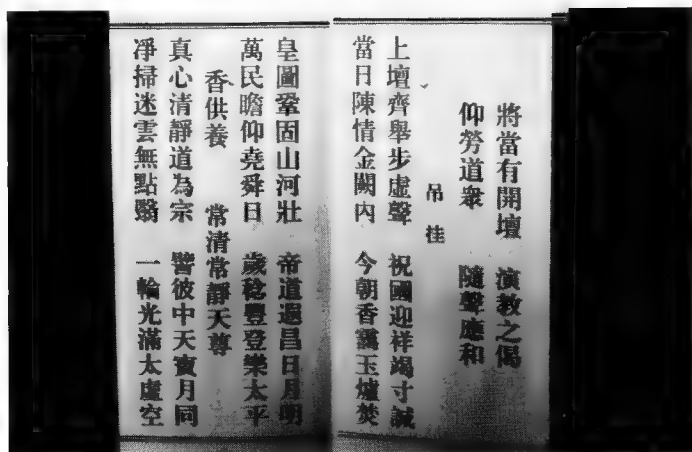 將當有開壇 演教之偈
仰勞道衆 隨聲應和
吊挂
上壇齊舉步虛聲 祝國迎祥竭寸誠
當日陳情金闕內 今朝香靄玉爐焚
皇圖鞏固山河壯 帝道遐昌日月明
萬民瞻仰堯舜日 歲稔豐登樂太平
香供養 常清常靜天尊
真心清靜道為宗 譬彼中天寶月同
凈掃迷雲無點翳 一輪光滿太虛空